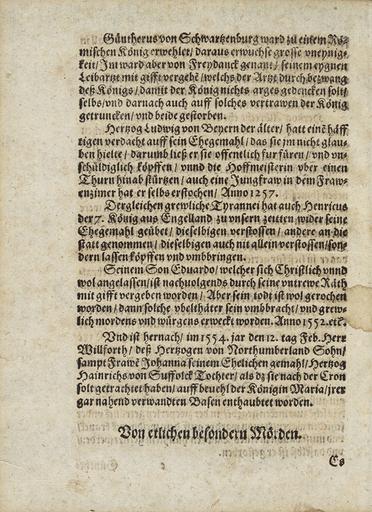 Güntherus von Schwartzenburg ward zu einem Rö-
mischen König erwehlet/ daraus erwuchse grosse vneynig-
keit/ Im ward aber von Freydanck genant/ seinem eygnen
Leibartzt mit gifft vergebē/ welchs der Artzt durch bezwang
deß Königs/ damit der König nichts arges gedencken solt
selbs/ vnd darnach auch auff solches vertrawen der König
getruncken/ vnd beide gestorben.
Hertzog Ludwig von Beyern der älter/ hatt einē häff-
tigen verdacht auff sein Ehegemahl/ das sie jm nicht glau-
ben hielte/ darumb ließ er sie offentlich fur füren/ vnd vn-
schüldiglich köpffen/ vnnd die Hoffmeisterin vber einen
Thurn hinab stürtzen/ auch eine Jungfraw in dem Fraw-
enzimer hat er selbs erstochen/ Anno 1257.
Dergleichen grewliche Tyrannei hat auch Henricus
der 7. König aus Engelland zu vnsern zeitten wider seine
Ehegemahl geübet/ dieselbigen verstossen/ andere an die
statt genommen/ dieselbigen auch nit allein verstossen/ son-
dern lassen köpffen vnd vmbbringen.
Seinem Son Eduardo/ welcher sich Christlich vnnd
wol angelassen/ ist nachuolgends durch seine vntrewe Räth
mit gifft vergeben worden/ Aber sein todt ist wol gerochen
worden/ dann solche vbelthäter sein vmbbracht/ vnd grew-
lich mordens vnd würgens erweckt worden. Anno 1552. etc.
Vnd ist hernach/ im 1554. jar den 12. tag Feb. Herr
Willforth/ deß Hertzogen von Northumberland Sohn/
sampt Frawē Johanna seinem Ehelichen gemahl/ Hertzog
Hainrichs von Suffolck Tochter/ als dz sie nach der Cron
solt getrachtet haben/ auff beuehl der Königin Maria/ jrer
gar nahend verwandten Basen enthaubtet worden.
Von erlichen besondern Mörden.
Es